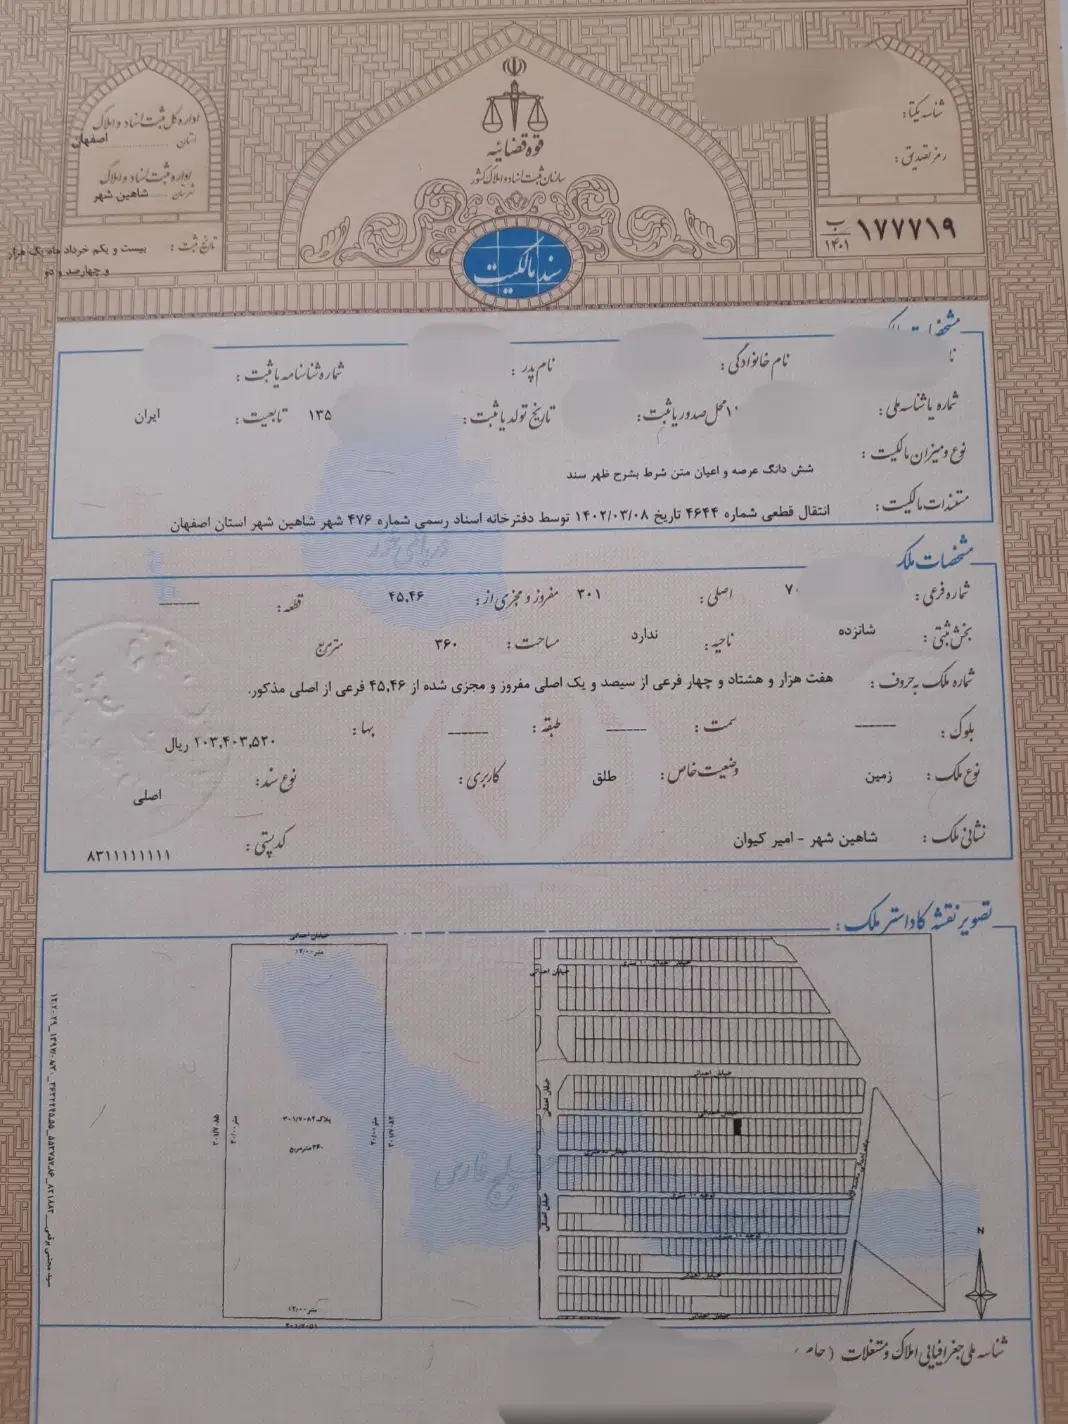 قوه قضائیه
سازمان ثبت اسناد و املاک کشور
سند مالکیت
شناسه یکتا:
رمز تصدیق:
۱۷۷۷۱۹ ب ۱۴۰۱
اداره کل ثبت اسناد و املاک
استان اصفهان
اداره ثبت اسناد و املاک
شهرستان شاهین شهر
تاریخ ثبت: بیست و یکم خرداد ماه یک هزار
و چهارصد و دو
مشخصات
نام خانوادگی: نام پدر: شماره شناسنامه یا ثبت:
شماره یا شناسه ملی: محل صدور یا ثبت: تاریخ تولد یا ثبت: ۱۳۵ تابعیت: ایران
نوع و میزان مالکیت: شش دانگ عرصه و اعیان متن شرط بشرح ظهر سند
مستندات مالکیت: انتقال قطعی شماره ۴۶۴۴ تاریخ ۱۴۰۲/۰۳/۰۸ توسط دفترخانه اسناد رسمی شماره ۴۷۶ شهر شاهین شهر استان اصفهان
دریای خزر
مشخصات ملک
شماره فرعی: ۷۰ اصلی: ۳۰۱ مفروز و مجزی از: ۴۵,۴۶ قطعه: ------
بخش ثبتی: شانزده ناحیه: ندارد مساحت: ۳۶۰ مترمربع
شماره ملک به حروف: هفت هزار و هشتاد و چهار فرعی از سیصد و یک اصلی مفروز و مجزی شده از ۴۵,۴۶ فرعی از اصلی مذکور.
بلوک: ------ سمت: ------ طبقه: ------ بها: ۱۰۳,۴۰۳,۵۲۰ ریال
نوع ملک: زمین وضعیت خاص: طلق کاربری: نوع سند: اصلی
نشانی ملک: شاهین شهر - امیر کیوان کد پستی: ۸۳۱۱۱۱۱۱۱۱
تصویر نقشه کاداستر ملک:
خیابان احداثی
۱۲/۰۰ متر
پلاک ۳۰۱/۷۰۸۴
۳۶۰ مترمربع
۳۰/۰۰ متر
۳۰/۰۰ متر
۳۰۱/۷۰۸۵
۱۲/۰۰ متر
خیابان احداثی
خیابان احداثی
خیابان احداثی
خیابان احداثی
خیابان احداثی
خیابان احداثی
خیابان احداثی
خلیج فارس
N
شناسه ملی جغرافیایی املاک و مستغلات (حام